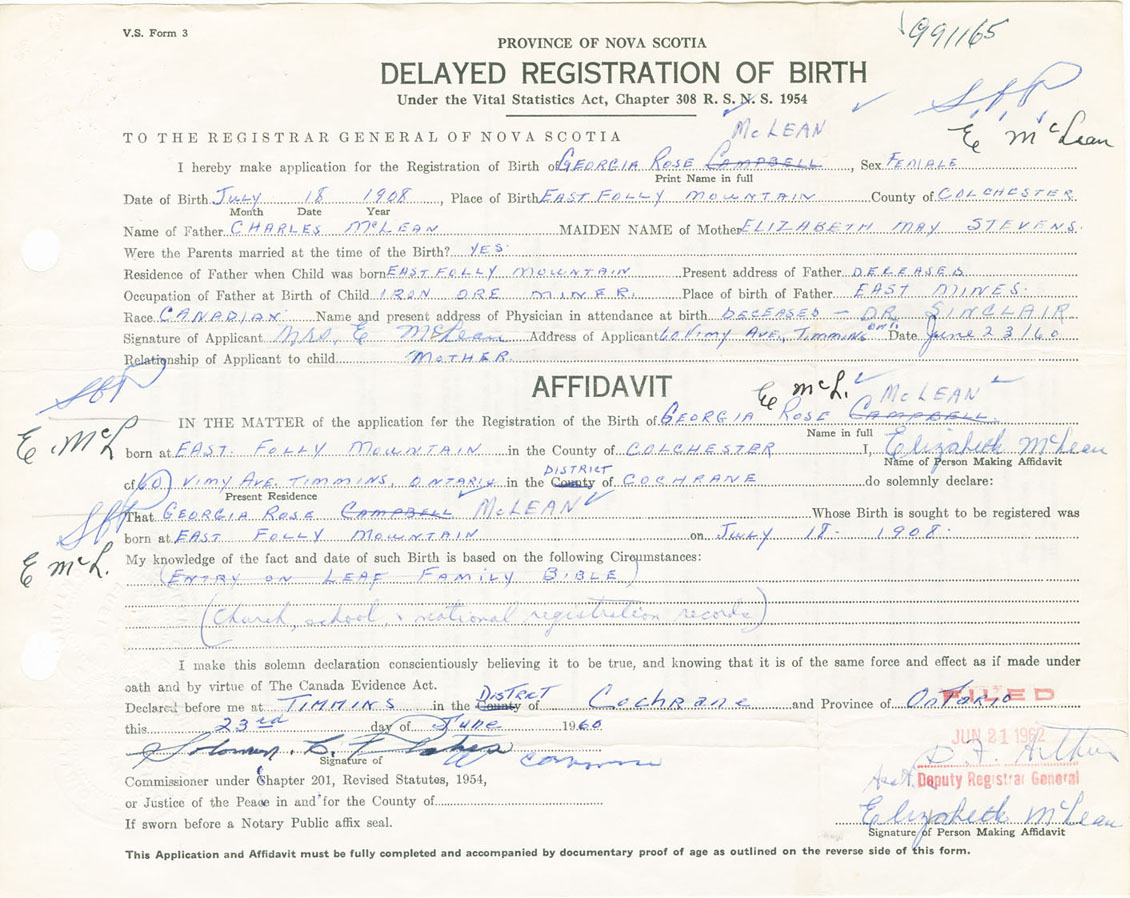 V.S. Form 3
991165
PROVINCE OF NOVA SCOTIA
DELAYED REGISTRATION OF BIRTH
Under the Vital Statistics Act, Chapter 308 R. S. N. S. 1954
E McLean
TO THE REGISTRAR GENERAL OF NOVA SCOTIA
McLEAN
I hereby make application for the Registration of Birth of GEORGIA ROSE CAMPBELL, Sex FEMALE
Print Name in full
Date of Birth JULY 18 1908, Place of Birth EAST FOLLY MOUNTAIN County of COLCHESTER
Month Date Year
Name of Father CHARLES McLEAN MAIDEN NAME of Mother ELIZABETH MAY STEVENS.
Were the Parents married at the time of the Birth? YES.
Residence of Father when Child was born EAST FOLLY MOUNTAIN Present address of Father DECEASED
Occupation of Father at Birth of Child IRON ORE MINER. Place of birth of Father EAST MINES.
Race CANADIAN. Name and present address of Physician in attendance at birth DECEASED – DR SINCLAIR
Signature of Applicant Mrs. E McLean Address of Applicant 60 Vimy Ave, Timmins Ont. Date June 23/60
Relationship of Applicant to child MOTHER
AFFIDAVIT
E McL. McLEAN
IN THE MATTER of the application for the Registration of the Birth of GEORGIA ROSE CAMPBELL.
Name in full
E. McL
born at EAST FOLLY MOUNTAIN in the County of COLCHESTER I, Elizabeth McLean
Name of Person Making Affidavit
DISTRICT
of 60 VIMY AVE. TIMMINS, ONTARIO in the County of COCHRANE do solemnly declare:
Present Residence
That GEORGIA ROSE CAMPBELL McLEAN Whose Birth is sought to be registered was
born at EAST FOLLY MOUNTAIN on JULY 18 - 1908.
E McL.
My knowledge of the fact and date of such Birth is based on the following Circumstances:
(ENTRY ON LEAF FAMILY BIBLE)
(Church, school, & national registration records)
I make this solemn declaration conscientiously believing it to be true, and knowing that it is of the same force and effect as if made under
oath and by virtue of The Canada Evidence Act.
DISTRICT
Declared before me at TIMMINS in the County of Cochrane and Province of Ontario
FILED
this 23rd day of June 1960
JUN 21 1962
Signature of
Commissioner under Chapter 201, Revised Statutes, 1954,
Asst. Deputy Registrar General
or Justice of the Peace in and for the County of
Elizabeth McLean
If sworn before a Notary Public affix seal.
Signature of Person Making Affidavit
This Application and Affidavit must be fully completed and accompanied by documentary proof of age as outlined on the reverse side of this form.